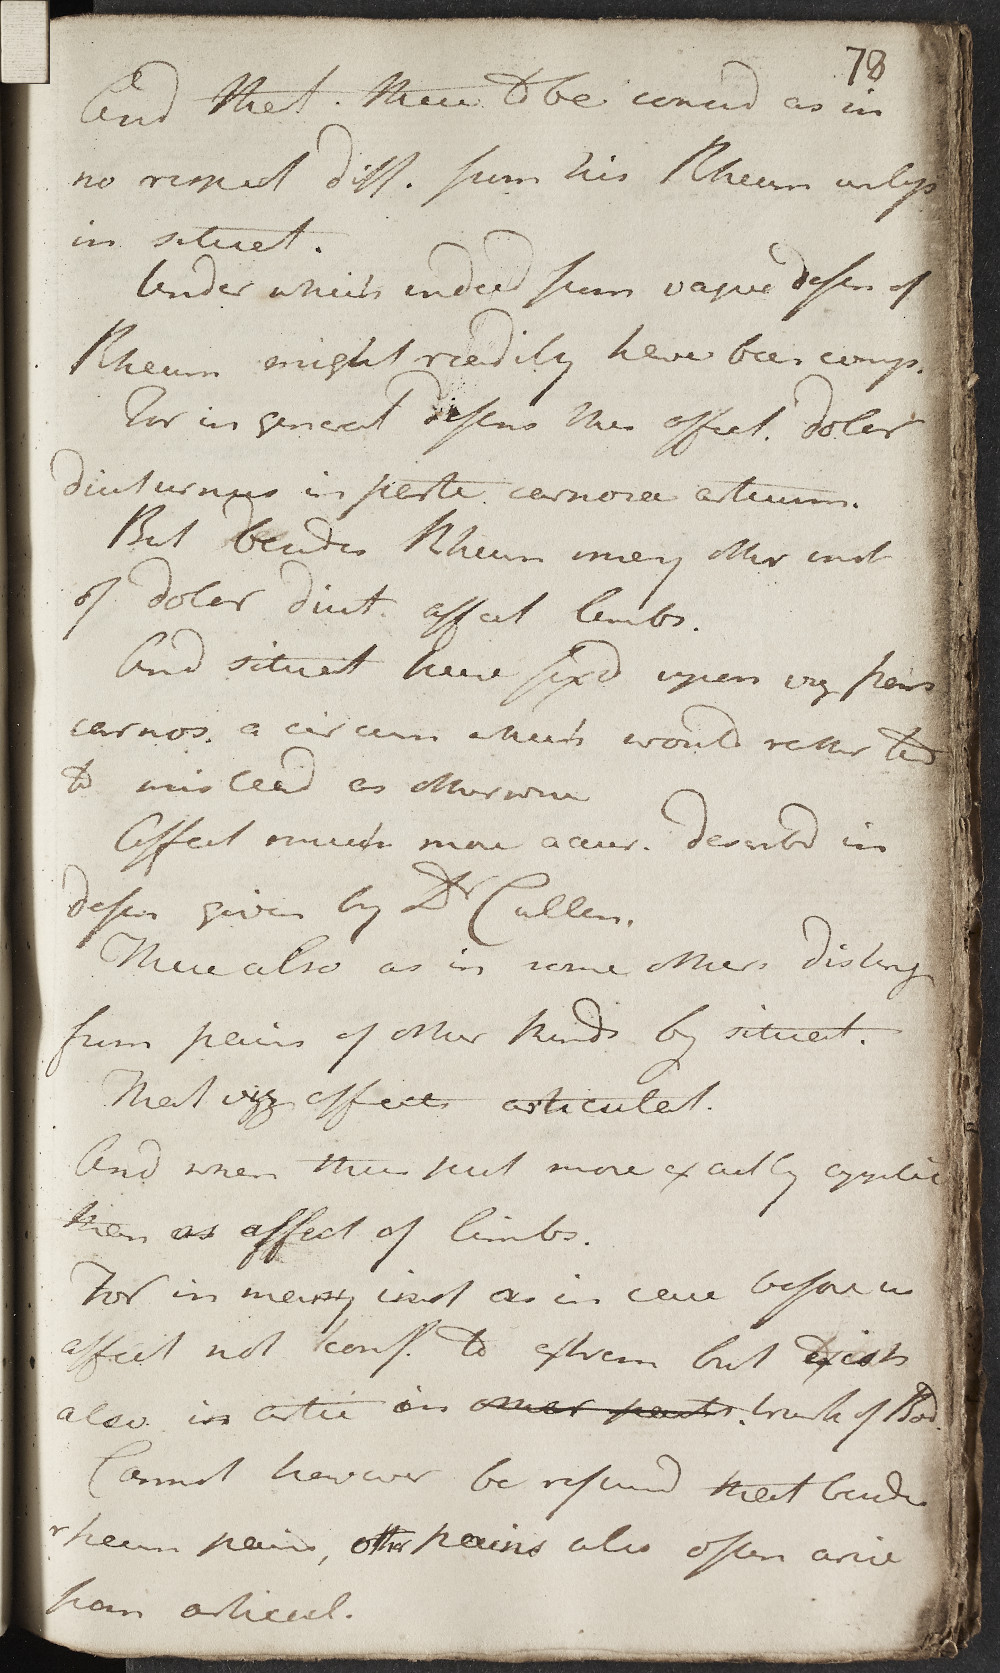 78
And that these to be consid as in
no respect diff. from his Rheum unless
in situat.
Under which indeed from vague defin of
Rheum might readily have been comp.
For in general defines this affect. dolor
diuturnus in parte carnosa artuum.
But besides Rheum many other inst
of dolor diut. affect limbs.
And situat here fix'd upon viz pars
carnos. a circum which would rather
to mislead as otherwise
Affect much more accur. describd in
defin given by Dr Cullen.
These also as in some others disting
from pains of other kinds by situat.
That viz affects articulat.
And when thus put more exactly applic
then as affect of limbs.
For in many inst as in case before us
affect not conf. to extrem but exists
also in artic in other parts. trunk of Bod.
Cannot however be refused that besides
rheum pains, other pains also often arise
from articul.